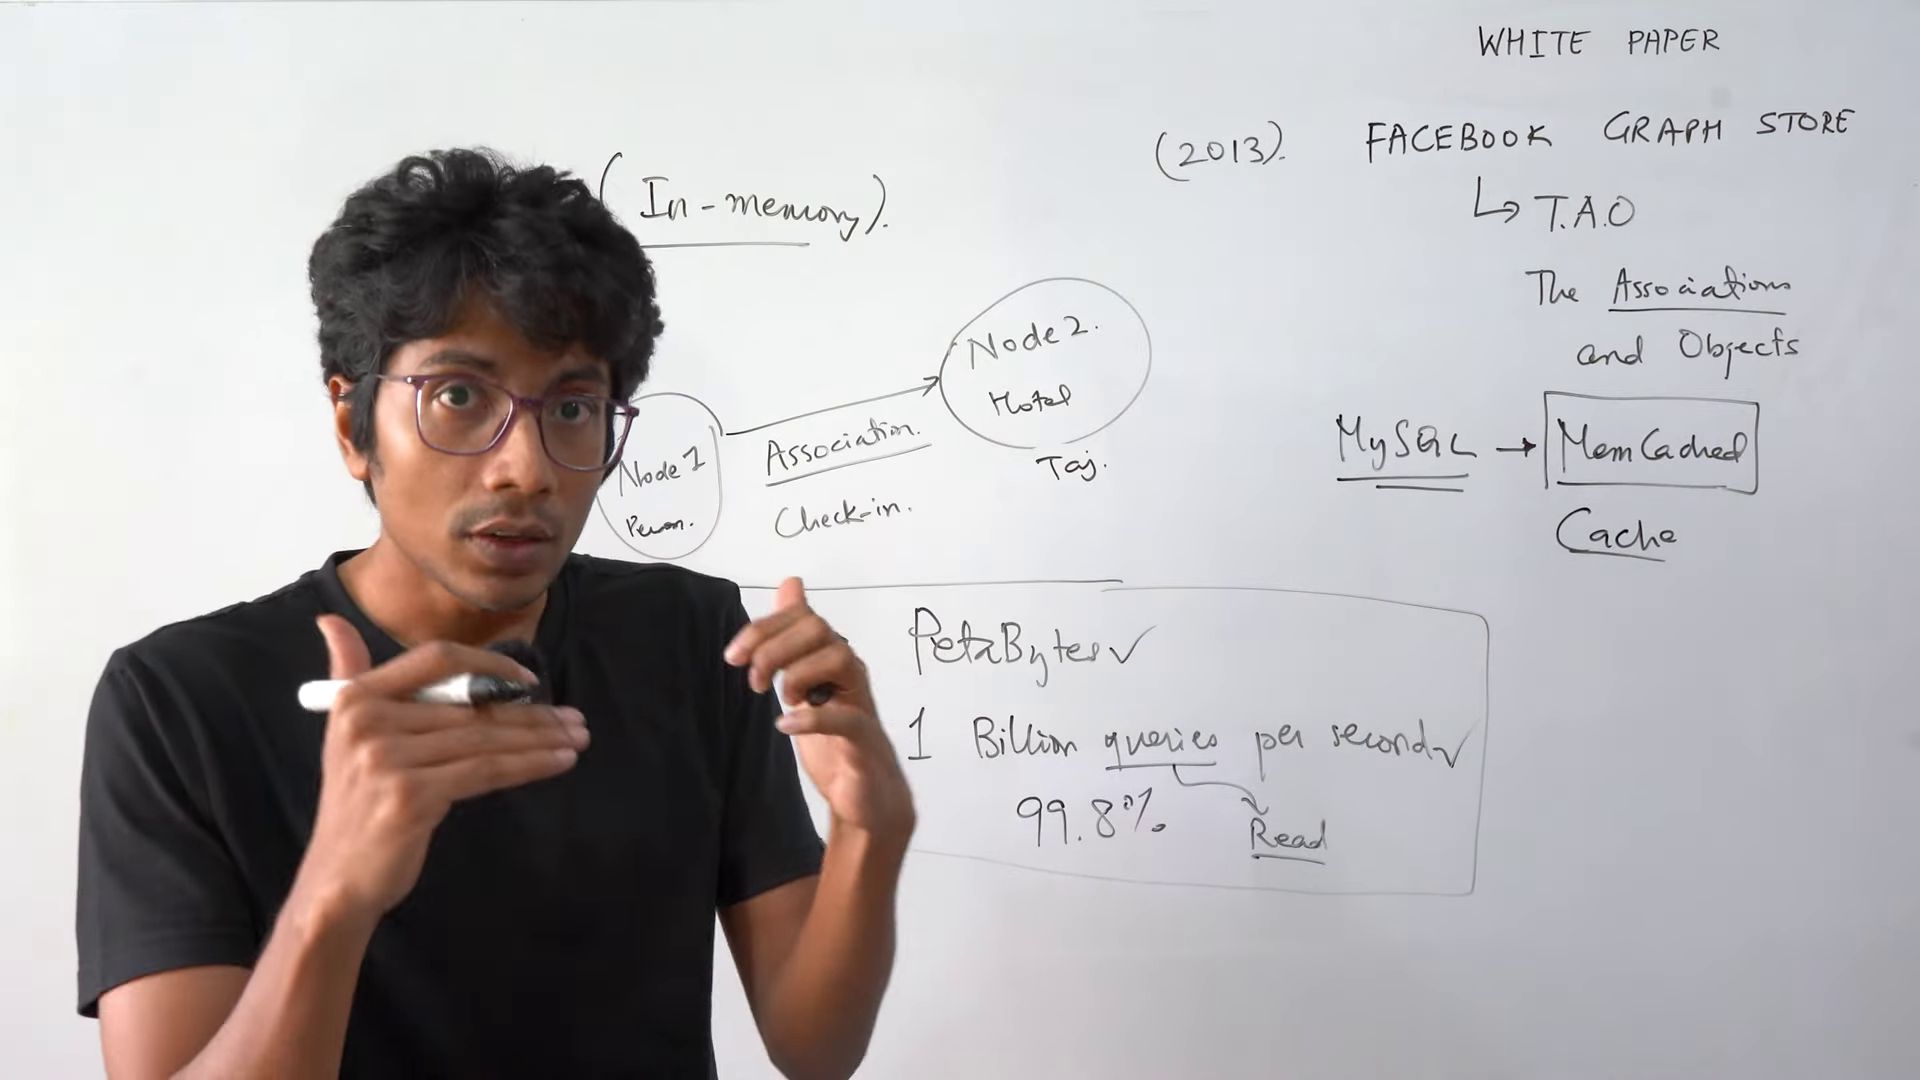 WHITE PAPER
(2013). FACEBOOK GRAPH STORE
↳ T.A.O
The Associations
and Objects
MySQL → MemCached
Cache
(In-memory).
Node 1
Person.
Association.
Check-in.
Node 2.
Hotel
Taj.
PetaBytes ✓
1 Billion queries per second ✓
99.8% Read